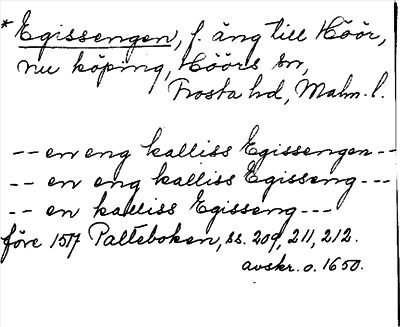 * Egissengen, f. äng till Höör,
nu köping, Höörs sn,
Frosta hd, Malm. l.
-- en eng kalliss Egissengen --
-- en eng kalliss Egisseng ---
-- en kalliss Egisseng ---
före 1517 Palteboken, ss. 209, 211, 212.
avskr. o. 1650.